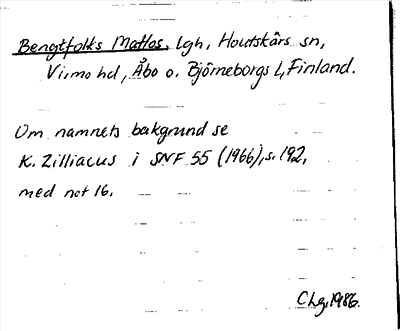 Bengtfolks Matlos, lgh, Houtskärs sn,
Virmo hd, Åbo o. Björneborgs l, Finland.
Om namnets bakgrund se
K. Zilliacus i SNF 55 (1966), s. 192,
med not 16.
CLg, 1986.